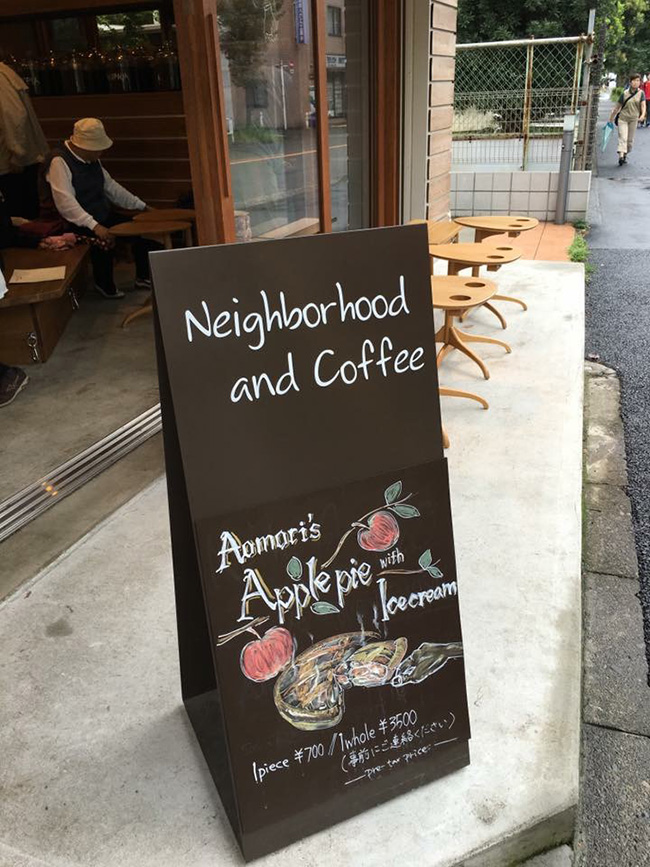 Neighborhood
and Coffee
Aomori's
Apple pie with
Icecream
1piece ¥700 // 1whole ¥3500
(事前にご連絡ください)
pre-tax price